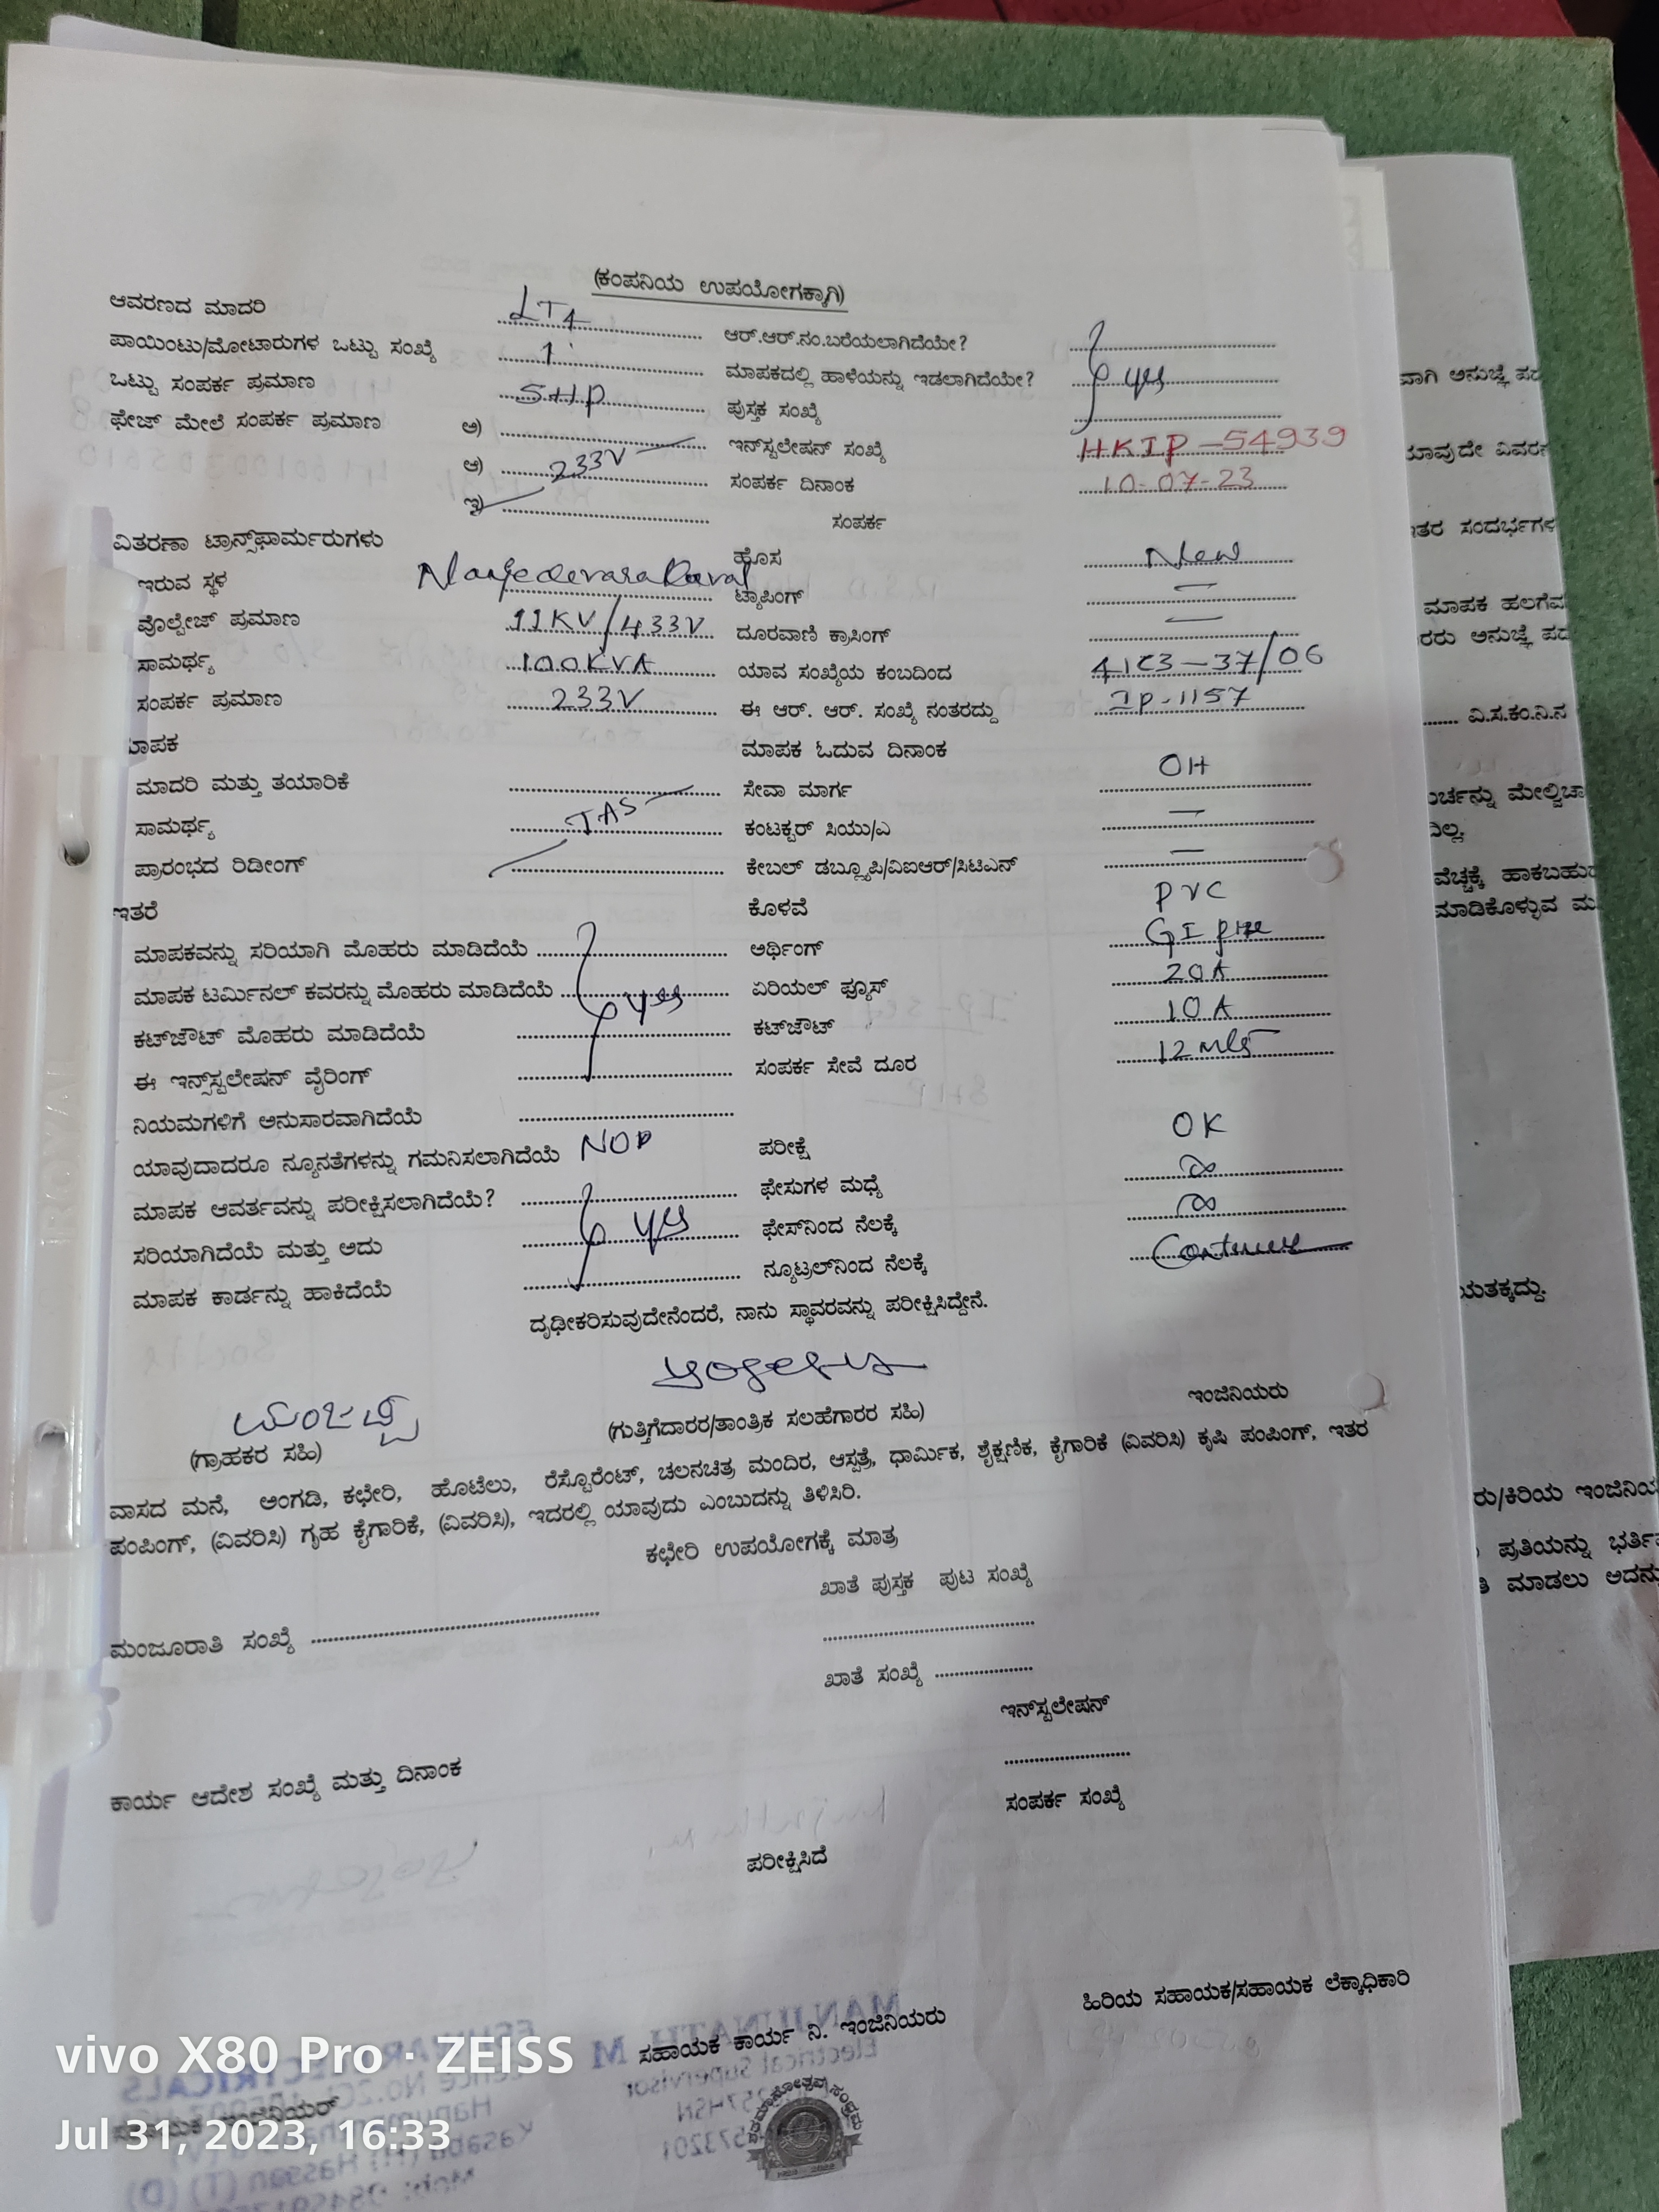 (ಕಂಪನಿಯ ಉಪಯೋಗಕ್ಕಾಗಿ)
ಆವರಣದ ಮಾದರಿ LT4 ಆರ್.ಆರ್.ನಂ.ಬರೆಯಲಾಗಿದೆಯೇ?
ಪಾಯಿಂಟು/ಮೋಟಾರುಗಳ ಒಟ್ಟು ಸಂಖ್ಯೆ 1 ಮಾಪಕದಲ್ಲಿ ಹಾಳೆಯನ್ನು ಇಡಲಾಗಿದೆಯೇ? yes
ಒಟ್ಟು ಸಂಪರ್ಕ ಪ್ರಮಾಣ 5HP ಪುಸ್ತಕ ಸಂಖ್ಯೆ
ಫೇಜ್ ಮೇಲೆ ಸಂಪರ್ಕ ಪ್ರಮಾಣ ಅ) ಇನ್‌ಸ್ಟಲೇಷನ್ ಸಂಖ್ಯೆ HKIP-54939
ಆ) 233V ಸಂಪರ್ಕ ದಿನಾಂಕ 10-07-23
ಇ) ಸಂಪರ್ಕ
ವಿತರಣಾ ಟ್ರಾನ್ಸ್‌ಫಾರ್ಮರುಗಳು ಹೊಸ New
ಇರುವ ಸ್ಥಳ ಟ್ಯಾಪಿಂಗ್ —
ವೊಲ್ಟೇಜ್ ಪ್ರಮಾಣ 11KV/433V ದೂರವಾಣಿ ಕ್ರಾಸಿಂಗ್ —
ಸಾಮರ್ಥ್ಯ 100KVA ಯಾವ ಸಂಖ್ಯೆಯ ಕಂಬದಿಂದ
ಸಂಪರ್ಕ ಪ್ರಮಾಣ 233V ಈ ಆರ್. ಆರ್. ಸಂಖ್ಯೆ ನಂತರದ್ದು IP-1157
ಮಾಪಕ ಓದುವ ದಿನಾಂಕ
ಮಾದರಿ ಮತ್ತು ತಯಾರಿಕೆ ಸೇವಾ ಮಾರ್ಗ OH
ಸಾಮರ್ಥ್ಯ ಕಂಟಕ್ಟರ್ ಸಿಯು/ಎ —
ಪ್ರಾರಂಭದ ರಿಡೀಂಗ್ ಕೇಬಲ್ ಡಬ್ಲ್ಯೂಪಿ/ವಿಐಆರ್/ಸಿಟಿಎನ್ —
ಇತರೆ ಕೊಳವೆ PVC
ಮಾಪಕವನ್ನು ಸರಿಯಾಗಿ ಮೊಹರು ಮಾಡಿದೆಯೆ ಅರ್ಥಿಂಗ್ GI pipe
ಮಾಪಕ ಟರ್ಮಿನಲ್ ಕವರನ್ನು ಮೊಹರು ಮಾಡಿದೆಯೆ yes ಏರಿಯಲ್ ಫ್ಯೂಸ್ 20A
ಕಟ್‌ಔಟ್ ಮೊಹರು ಮಾಡಿದೆಯೆ ಕಟ್‌ಔಟ್ 10A
ಈ ಇನ್ಸ್‌ಸ್ಟಲೇಷನ್ ವೈರಿಂಗ್ ಸಂಪರ್ಕ ಸೇವೆ ದೂರ 12 mts
ನಿಯಮಗಳಿಗೆ ಅನುಸಾರವಾಗಿದೆಯೆ
ಯಾವುದಾದರೂ ನ್ಯೂನತೆಗಳನ್ನು ಗಮನಿಸಲಾಗಿದೆಯೆ ಪರೀಕ್ಷೆ OK
ಮಾಪಕ ಆವರ್ತವನ್ನು ಪರೀಕ್ಷಿಸಲಾಗಿದೆಯೆ? ಫೇಸುಗಳ ಮಧ್ಯೆ ∞
ಸರಿಯಾಗಿದೆಯೆ ಮತ್ತು ಅದು yes ಫೇಸ್‌ನಿಂದ ನೆಲಕ್ಕೆ ∞
ಮಾಪಕ ಕಾರ್ಡನ್ನು ಹಾಕಿದೆಯೆ ನ್ಯೂಟ್ರಲ್‌ನಿಂದ ನೆಲಕ್ಕೆ
ದೃಢೀಕರಿಸುವುದೇನೆಂದರೆ, ನಾನು ಸ್ಥಾವರವನ್ನು ಪರೀಕ್ಷಿಸಿದ್ದೇನೆ.
(ಗ್ರಾಹಕರ ಸಹಿ) (ಗುತ್ತಿಗೆದಾರರ/ತಾಂತ್ರಿಕ ಸಲಹೆಗಾರರ ಸಹಿ) ಇಂಜಿನಿಯರು
ವಾಸದ ಮನೆ, ಅಂಗಡಿ, ಕಛೇರಿ, ಹೊಟೆಲು, ರೆಸ್ಟೊರೆಂಟ್, ಚಲನಚಿತ್ರ ಮಂದಿರ, ಆಸ್ಪತ್ರೆ, ಧಾರ್ಮಿಕ, ಶೈಕ್ಷಣಿಕ, ಕೈಗಾರಿಕೆ (ವಿವರಿಸಿ) ಕೃಷಿ ಪಂಪಿಂಗ್, ಇತರ
ಪಂಪಿಂಗ್, (ವಿವರಿಸಿ) ಗೃಹ ಕೈಗಾರಿಕೆ, (ವಿವರಿಸಿ), ಇದರಲ್ಲಿ ಯಾವುದು ಎಂಬುದನ್ನು ತಿಳಿಸಿರಿ.
ಕಛೇರಿ ಉಪಯೋಗಕ್ಕೆ ಮಾತ್ರ
ಖಾತೆ ಪುಸ್ತಕ ಪುಟ ಸಂಖ್ಯೆ
ಮಂಜೂರಾತಿ ಸಂಖ್ಯೆ
ಖಾತೆ ಸಂಖ್ಯೆ
ಇನ್‌ಸ್ಟಲೇಷನ್
ಕಾರ್ಯ ಆದೇಶ ಸಂಖ್ಯೆ ಮತ್ತು ದಿನಾಂಕ
ಸಂಪರ್ಕ ಸಂಖ್ಯೆ
ಪರೀಕ್ಷಿಸಿದೆ
ಹಿರಿಯ ಸಹಾಯಕ/ಸಹಾಯಕ ಲೆಕ್ಕಾಧಿಕಾರಿ
ಸಹಾಯಕ ಕಾರ್ಯ ನಿ. ಇಂಜಿನಿಯರು
vivo X80 Pro · ZEISS
Jul 31, 2023, 16:33